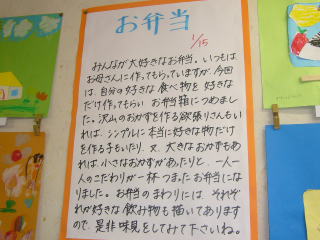 お弁当
1/15
みんなが大好きなお弁当。いつもは、
お母さんに作ってもらっていますが、今回
は、自分の好きな食べ物を好きな
だけ作ってもらい お弁当箱につめまし
た。沢山のおかずを作る欲張りさんもい
れば、シンプルに本当に好きな物だけ
を作る子もいたり、又、大きなおかずもあ
れば、小さなおかずがあったりと、一人一
人のこだわりが一杯つまったお弁当にな
りました。お弁当のまわりには、それぞ
れが好きな飲み物も描いてあります
ので、是非味見をしてみて下さいね。